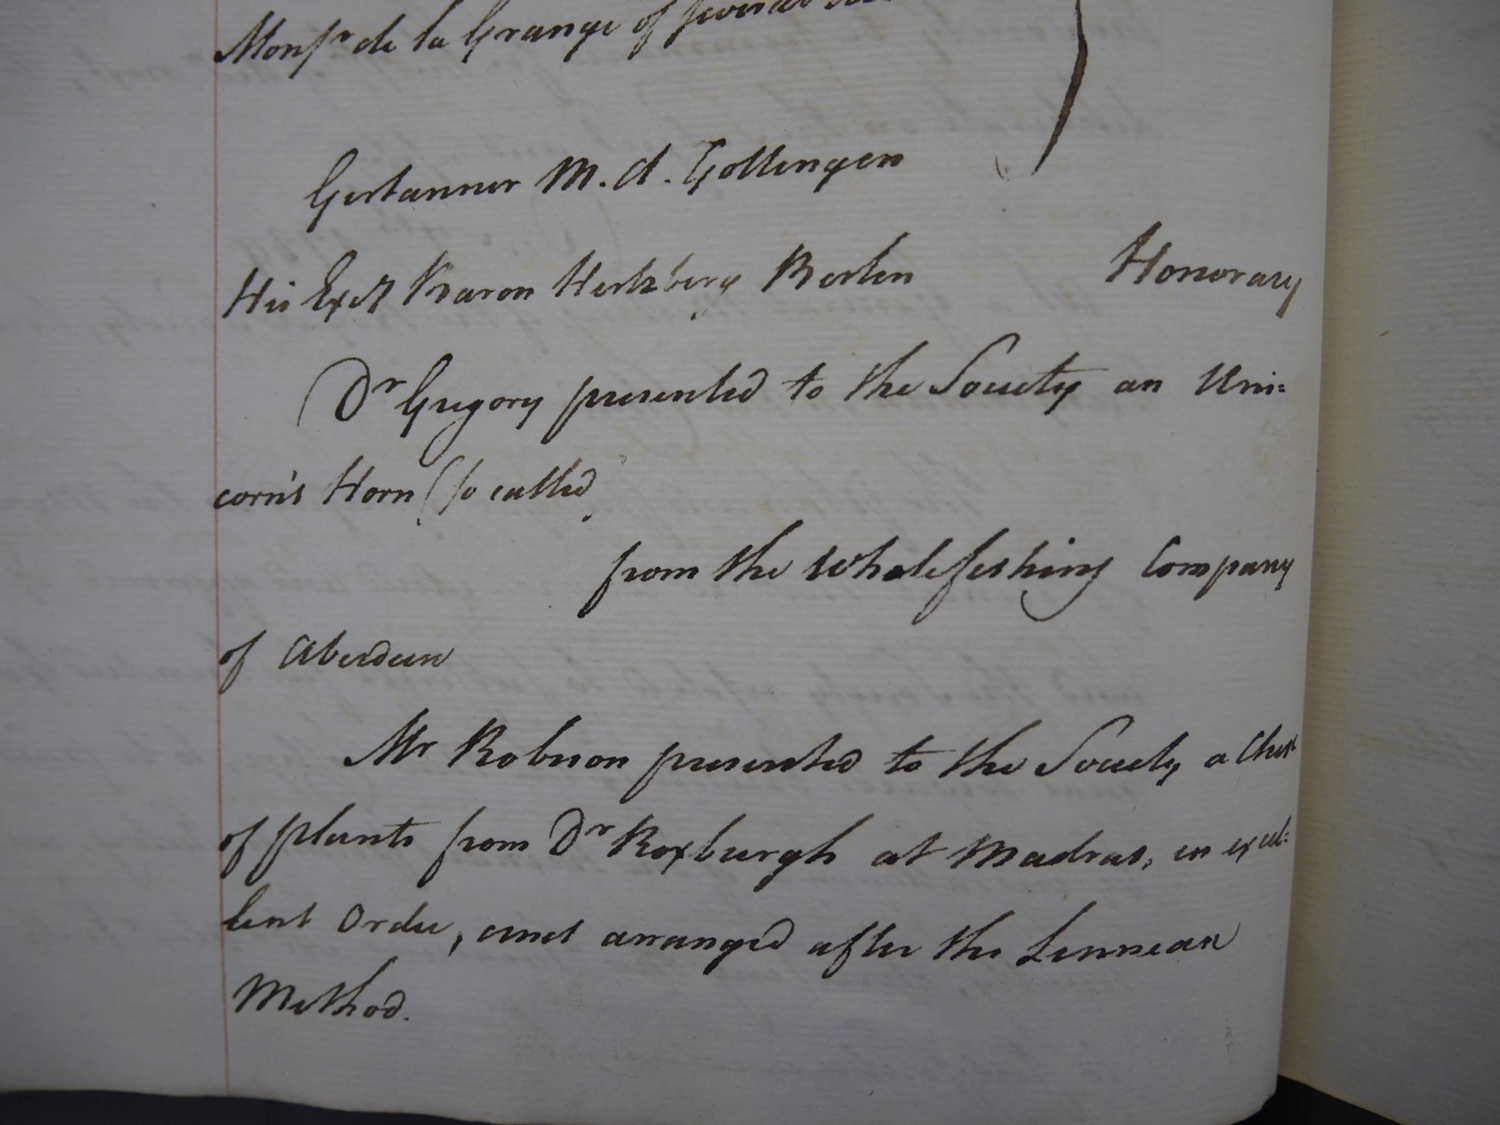 Monsr de la Grange of several
Gertanner M. d. Gottingen
His Excy Baron Hertzberg Berlin Honorary
Dr Gregory presented to the Society an Uni=
corn's Horn (so called
from the Whalefishing Company
of Aberdeen
Mr Robison presented to the Society a Chest
of plants from Dr Roxburgh at Madras, in excel=
lent Order, and arranged after the Linnean
Method.